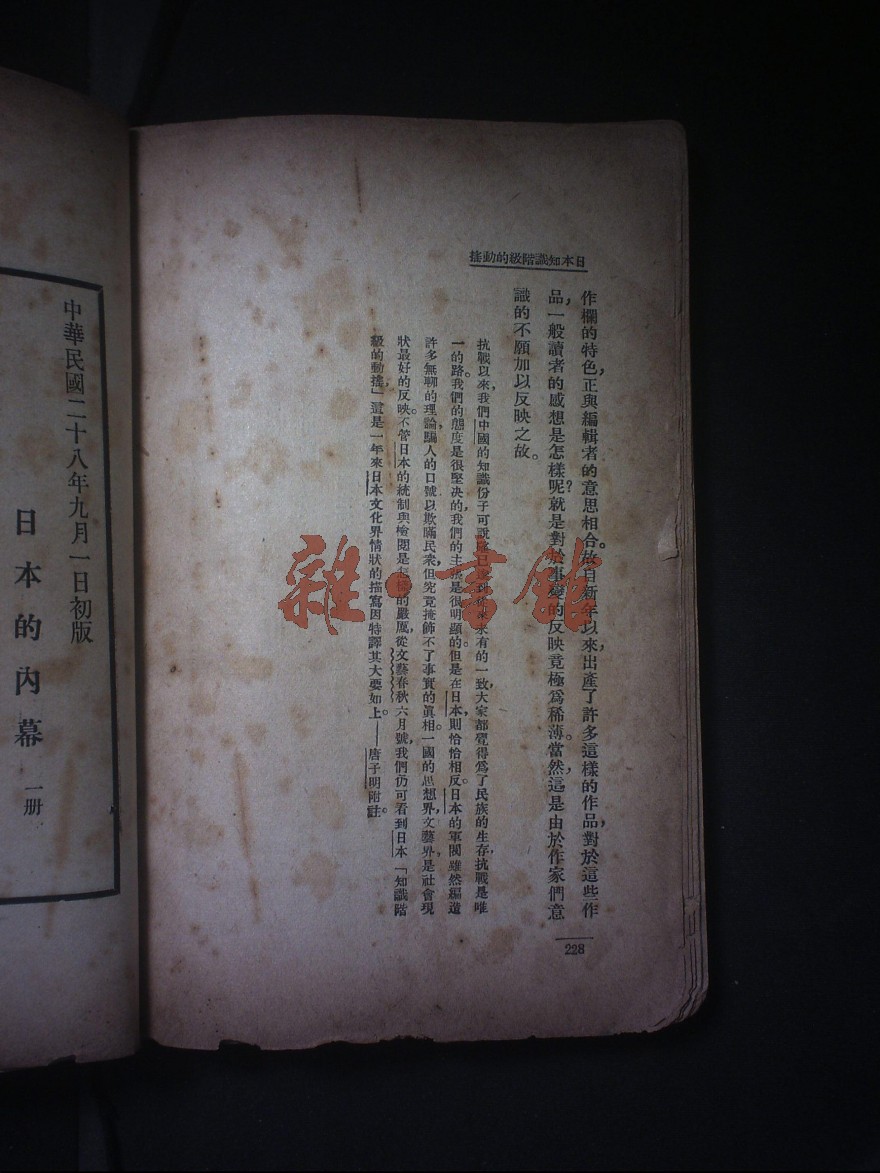 日本知識階級的動搖
作欄的特色，正與編輯者的意思相合。故自新年以來，出產了許多這樣的作品，對於這些作
品，一般讀者的感想是怎樣呢？就是對於事變的反映竟極爲稀薄。當然，這是由於作家們意
識的不願加以反映之故。
抗戰以來，我們中國的知識份子可說是已達到從來未有的一致，大家都覺得爲了民族的生存，抗戰是唯
一的路。我們的態度是很堅決的，我們的主張是很明顯的。但是在日本，則恰恰相反。日本的軍閥雖然編造
許多無聊的理論，騙人的口號，以欺瞞民衆，但究竟掩飾不了事實的眞相。一國的思想界，文藝界，是社會現
狀最好的反映。不管日本的統制與檢閱是怎樣的嚴厲，從文藝春秋六月號，我們仍可看到日本「知識階
級的動搖」，這是一年來日本文化界情狀的描寫，因特譯其大要如上。——唐子明附註。
228
中華民國二十八年九月一日初版
日本的內幕 一册
雜·書館